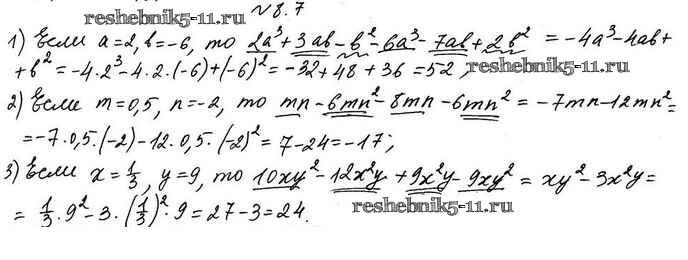 №8.7
reshebnik5-11.ru
1) Если a=2, b=-6, то 2a³+3ab-b²-6a³-7ab+2b² = -4a³-4ab+
+b²=-4·2³-4·2·(-6)+(-6)²=-32+48+36=52;
reshebnik5-11.ru
2) Если m=0,5, n=-2, то mn-6mn²-8mn-6mn² = -7mn-12mn²=
=-7·0,5·(-2)-12·0,5·(-2)²=7-24=-17;
3) Если x=1/3, y=9, то 10xy²-12x²y+9x²y-9xy² = xy²-3x²y=
= 1/3·9²-3·(1/3)²·9=27-3=24.
reshebnik5-11.ru